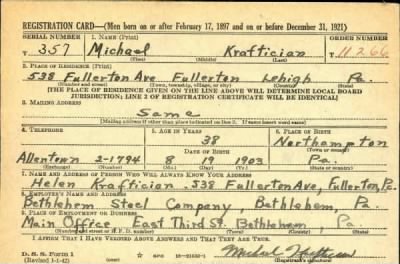 REGISTRATION CARD—(Men born on or after February 17, 1897 and on or before December 31, 1921)
SERIAL NUMBER 1. NAME (Print) ORDER NUMBER
T 357 Michael Kraftician T 11266
(First) (Middle) (Last)
2. PLACE OF RESIDENCE (Print)
538 Fullerton Ave Fullerton Lehigh Pa.
(Number and street) (Town, township, village, or city) (County) (State)
[THE PLACE OF RESIDENCE GIVEN ON THE LINE ABOVE WILL DETERMINE LOCAL BOARD
JURISDICTION; LINE 2 OF REGISTRATION CERTIFICATE WILL BE IDENTICAL]
3. MAILING ADDRESS
Same
[Mailing address if other than place indicated on line 2. If same insert word same]
4. TELEPHONE 5. AGE IN YEARS 6. PLACE OF BIRTH
38 Northampton
DATE OF BIRTH (Town or county)
Allentown 2-1794 8 19 1903 Pa.
(Mo.) (Day) (Yr.) (State or country)
7. NAME AND ADDRESS OF PERSON WHO WILL ALWAYS KNOW YOUR ADDRESS
Helen Kraftician 538 Fullerton Ave, Fullerton, Pa.
8. EMPLOYER'S NAME AND ADDRESS
Bethlehem Steel Company Bethlehem, Pa.
9. PLACE OF EMPLOYMENT OR BUSINESS
Main Office East Third St. Bethlehem, Pa.
(Number and street or R. F. D. number) (Town) (County) (State)
I AFFIRM THAT I HAVE VERIFIED ABOVE ANSWERS AND THAT THEY ARE TRUE.
D. S. S. Form 1
(Revised 1-1-42) (over) Michael Kraftician
(Registrant's signature)